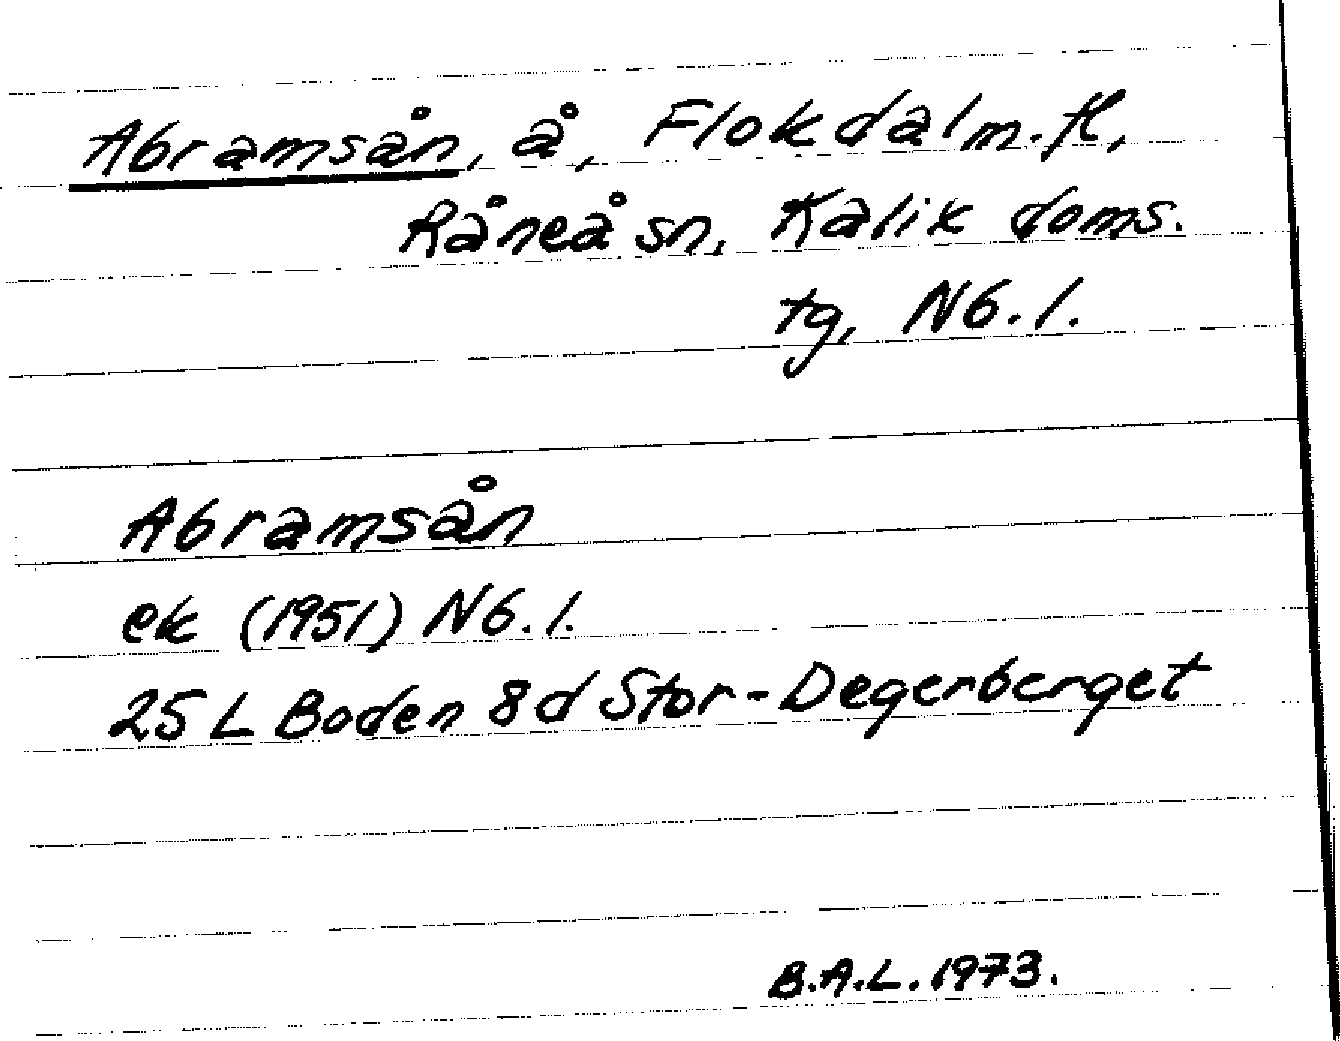 Abramsån, å, Flokdal m.fl,
Råneå sn, Kalix doms.
tg, Nb.l.
Abramsån
ek (1951) Nb.l.
25 L Boden 8d Stor-Degerberget
B.A.L. 1973.